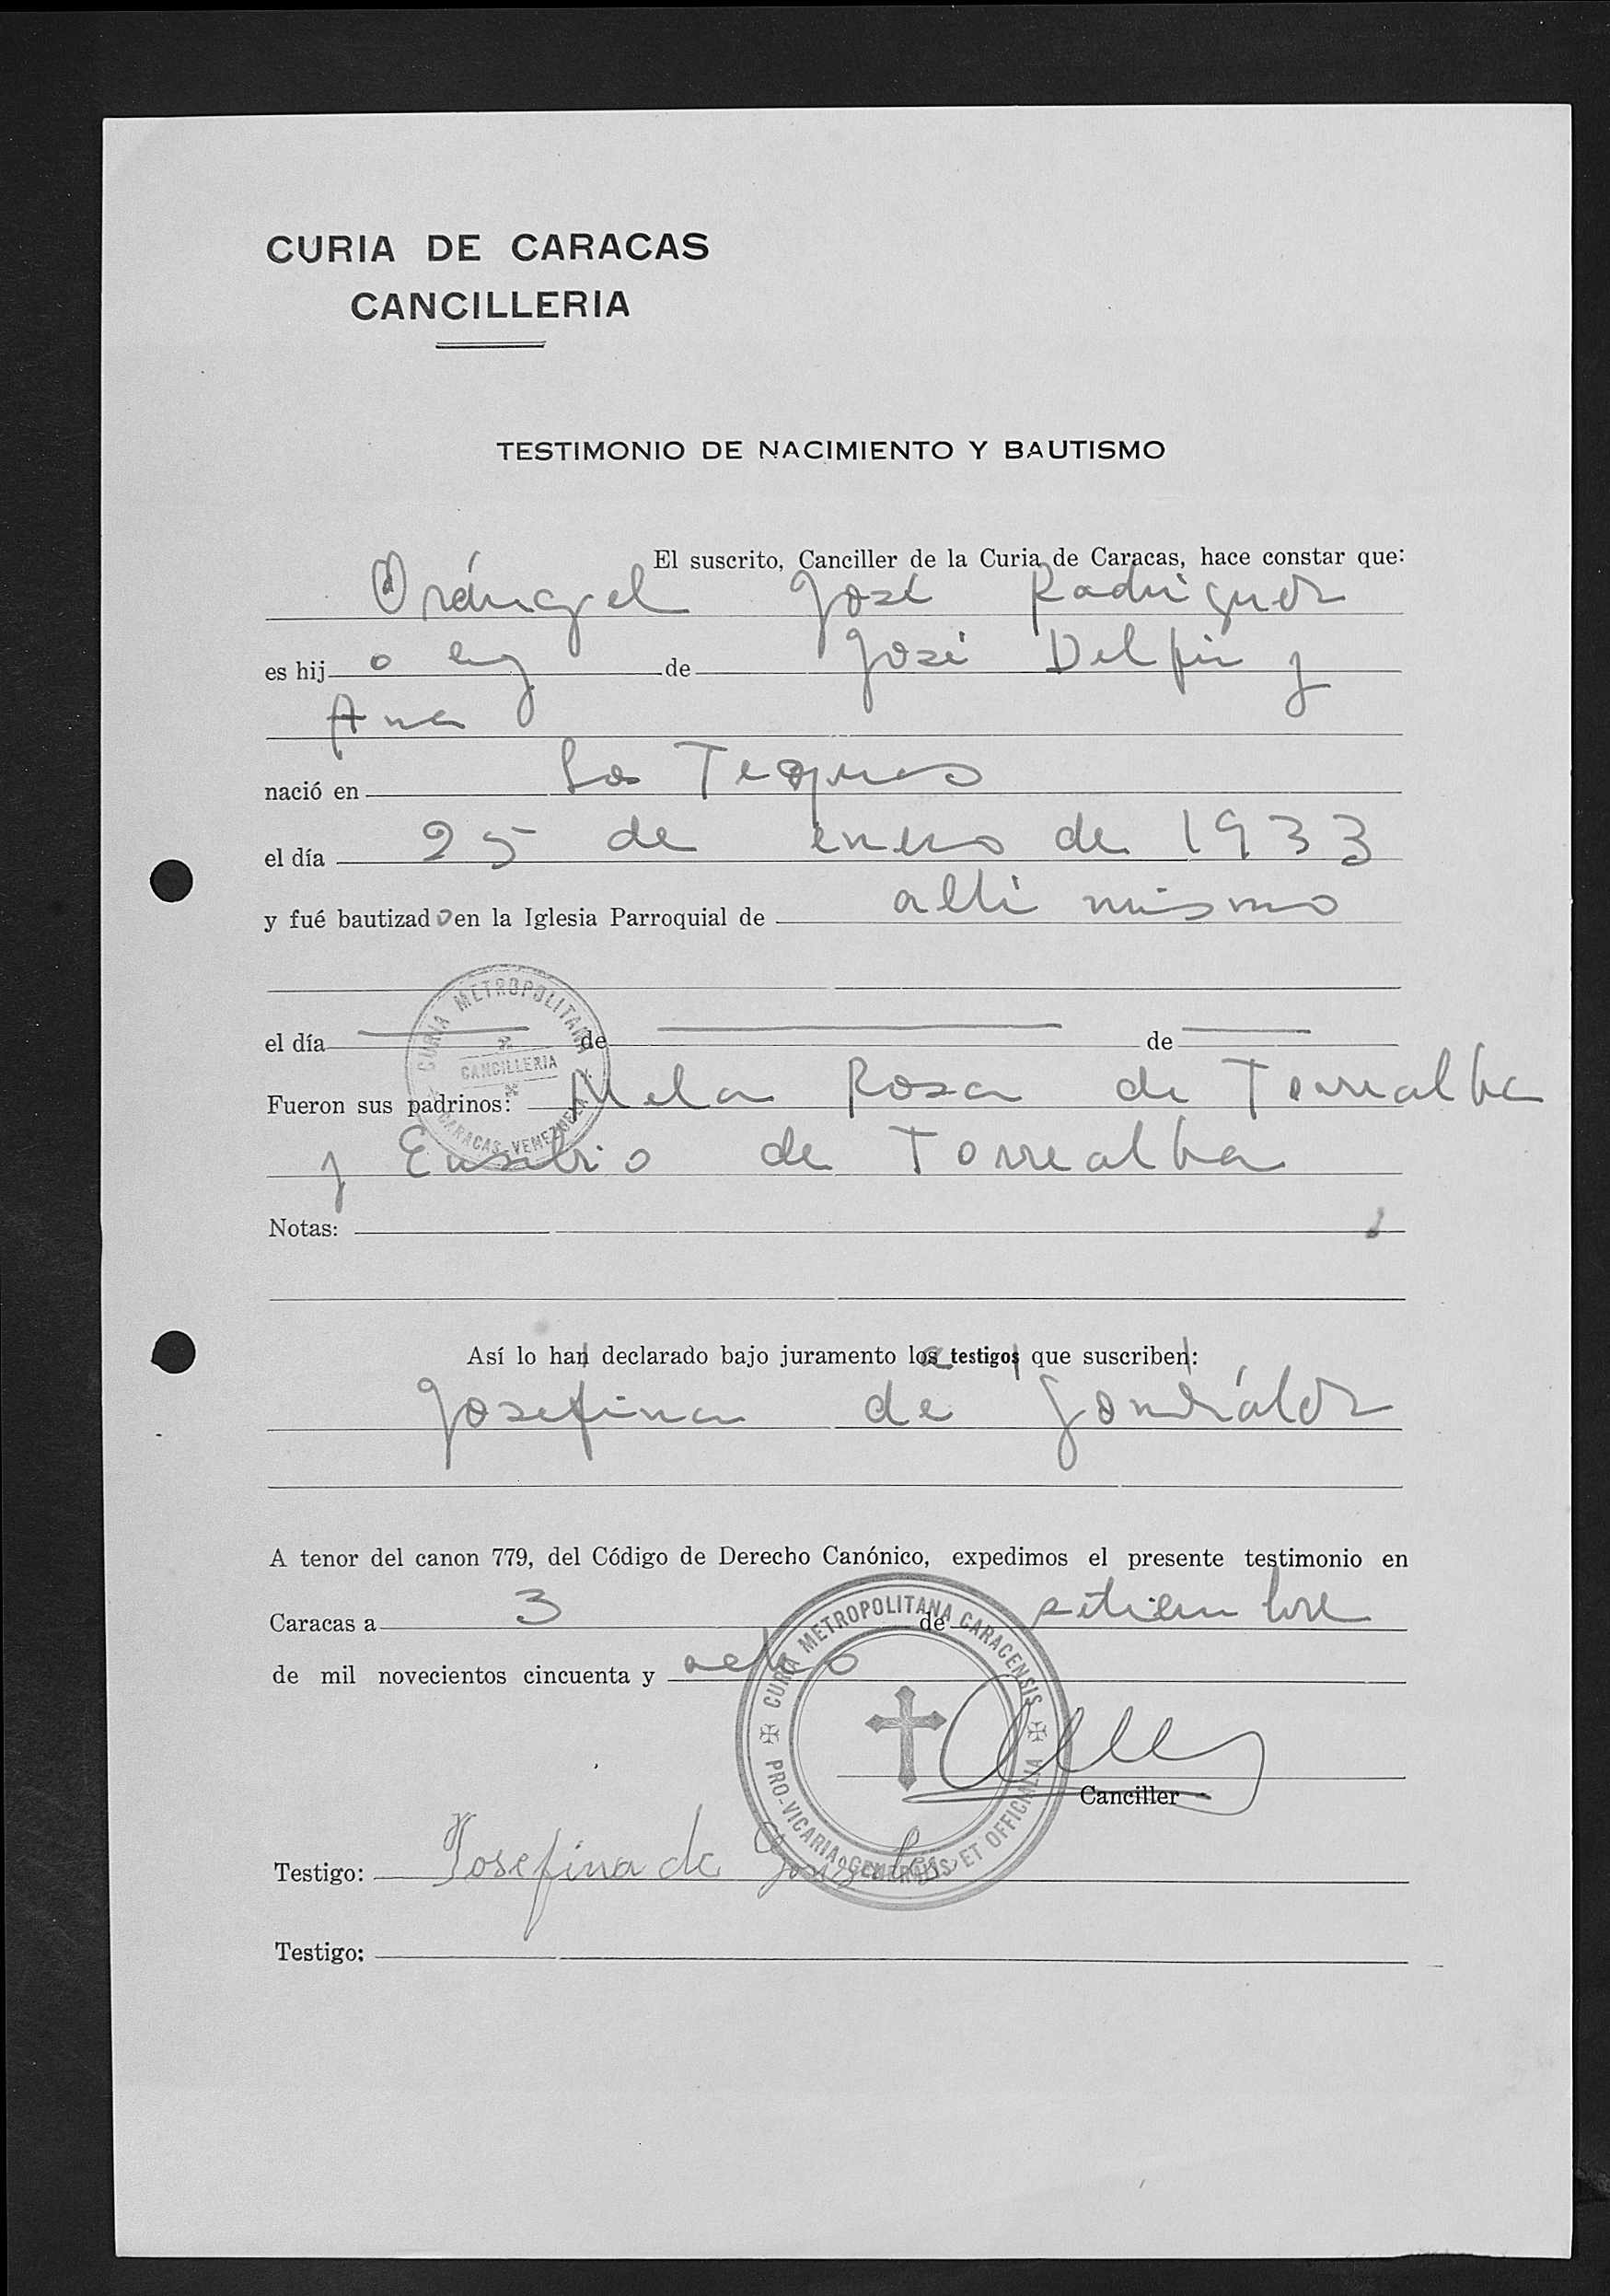 CURIA DE CARACAS
CANCILLERIA
TESTIMONIO DE NACIMIENTO Y BAUTISMO
El suscrito, Canciller de la Curia de Caracas, hace constar que:
Orángel José Rodriguez
es hij o leg de José Delfin y
Ana
nació en Los Teques
el día 25 de enero de 1933
y fué bautizad o en la Iglesia Parroquial de alli mismo
el día de de
CURIA METROPOLITANA
CANCILLERIA
CARACAS-VENEZUELA
Fueron sus padrinos: Rosa de Torrealba
y Eusebio de Torrealba
Notas:
Así lo han declarado bajo juramento los testigos que suscriben:
Josefina de González
A tenor del canon 779, del Código de Derecho Canónico, expedimos el presente testimonio en
Caracas a 3 de setiembre
de mil novecientos cincuenta y ocho
CURIA METROPOLITANA CARACENSIS
PRO-VICARIA GENERALIS ET OFFICIALIA
Canciller
Testigo: Josefina de Gonzalez
Testigo: